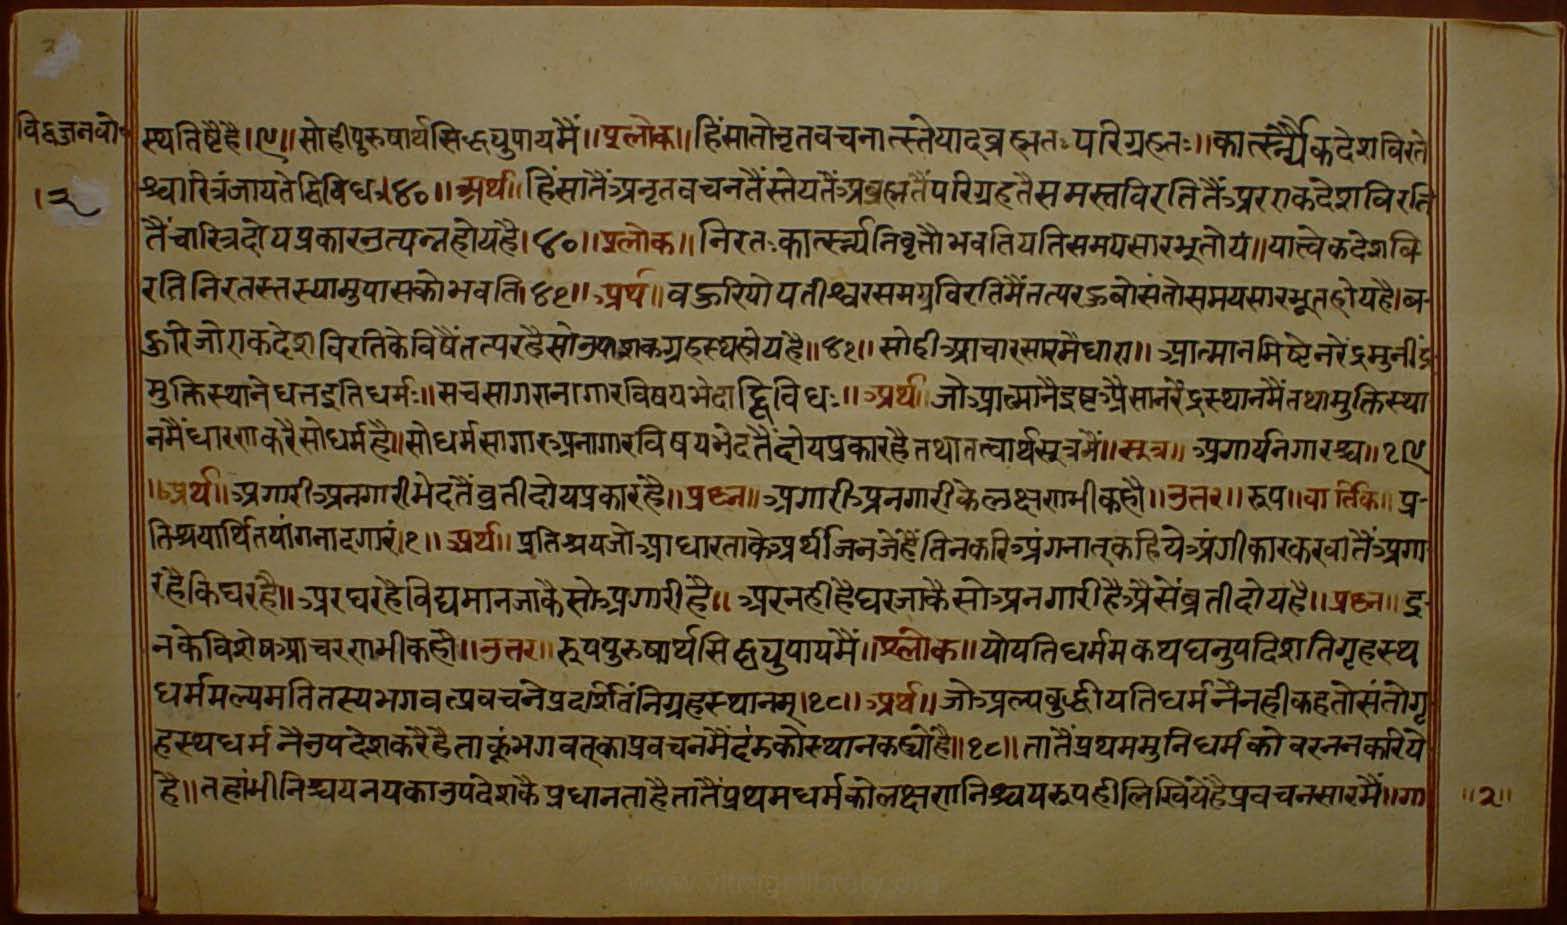 विद्वज्जनबो॰
।२
स्थतिष्टैहै।।९।। सोहीपुरुषार्थसिद्ध्युपायमैं।।श्लोक।। हिंसातोनृतवचनात्स्तेयादब्रह्मतःपरिग्रहतः।। कार्त्स्न्यैकदेशविरते
श्चारित्रंजायतेद्विविधं।४०।। अर्थ।। हिंसातैंअनृतवचनतैंस्तेयतैंअब्रह्मतैंपरिग्रहतैसमस्तविरतितैंअरएकदेशविरति
तैंचारित्रदोयप्रकारउत्पन्नहोयहै।४०।। श्लोक।। निरतःकार्त्स्न्यनिवृत्तौभवतियतिसमयसारभूतोयं।। यात्वेकदेशवि
रतिनिरतस्तस्यामुपासकोभवति।४१।। अर्थ।। वहुरियोयतीश्वरसमग्रविरतिमैंतत्परहुवोसंतोसमयसारभूतहोयहै।ब-
हुरिजोएकदेशविरतिकेविषैंतत्परहैसोउपाशकग्रहस्थहोयहै।।४१।। सोहीआचारसारमैधारा।। आत्मानमिष्टेनरेंद्रमुनींद्र
मुक्तिस्थानेधत्तइतिधर्मः।। सचसागरानागारविषयभेदाद्द्विविधः।। अर्थ।। जोआत्मानैइष्टअैसानरेंद्रस्थानमैंतथामुक्तिस्था
नमैंधारणकरैसोधर्महै।।सोधर्मसागारअनागारविषयभेदतैंदोयप्रकारहैतथातत्वार्थसूत्रमैं।। सूत्र।। अगार्यनगारश्च।।१९
।। अर्थ।। अगारीअनगारीभेदतैंव्रतीदोयप्रकारहै।। प्रश्न।। अगारीअनगारीकेलक्षणभीकहौ।। उत्तर।। रूप।। वार्तिक।। प्र-
तिश्रयार्थितयांगनादगारं।१।। अर्थ।। प्रतिश्रयजोआधारताकेअर्थजिनजेहैंतिनकरिअंगनात्कहियेअंगीकारकरवातैंअगा
रहैकिघरहै।। अरघरहैविद्यमानजाकैसोअगारीहै।। अरनहीहैघरजाकैसोअनगारीहैअैसेंव्रतीदोयहै।। प्रश्न।। इ-
नकेविशेषआचरणभीकहौ।। उत्तर।। रूपपुरुषार्थसिद्ध्युपायमैं।। श्लोक।। योयतिधर्ममकथयन्नुपदिशतिगृहस्थ
धर्ममल्पमतितस्यभगवत्प्रवचनेप्रदर्शितंनिग्रहस्थानम्।१८।। अर्थ।। जोअल्पबुद्धीयतिधर्मनैनहीकहतोसंतोगृ
हस्थधर्मनैउपदेशकरैहैताकूंभगवत्काप्रवचनमैदंडकोस्थानकह्योहै।।१८।। तातैंप्रथममुनिधर्मकोवरननकरिये
है।। तहांभीनिश्चयनयकाउपदेशकैप्रधानताहैतातैंप्रथमधर्मकोलक्षणनिश्चयरूपहीलिखियेहैप्रवचनसारमैं।।गा
।।२।।